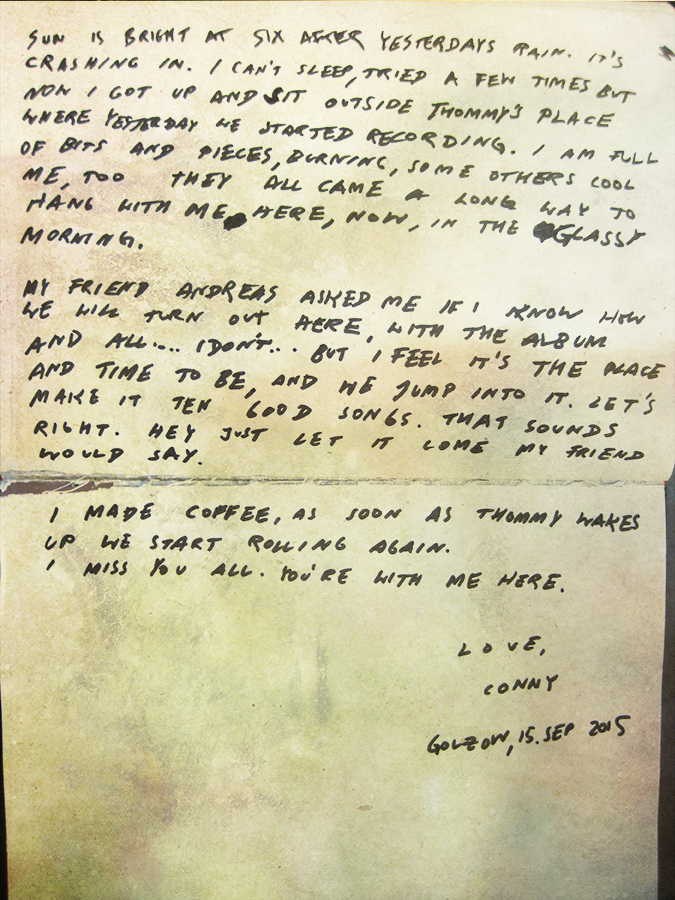 SUN IS BRIGHT AT SIX AFTER YESTERDAYS RAIN. IT'S
CRASHING IN. I CAN'T SLEEP, TRIED A FEW TIMES BUT
NOW I GOT UP AND SIT OUTSIDE THOMMY'S PLACE
WHERE YESTERDAY WE STARTED RECORDING. I AM FULL
OF BITS AND PIECES, BURNING, SOME OTHERS COOL
ME, TOO THEY ALL CAME A LONG WAY TO
HANG WITH ME, HERE, NOW, IN THE GLASSY
MORNING.
MY FRIEND ANDREAS ASKED ME IF I KNOW HOW
WE WILL TURN OUT HERE, WITH THE ALBUM
AND ALL.... I DON'T... BUT I FEEL IT'S THE PLACE
AND TIME TO BE, AND WE JUMP INTO IT. LET'S
MAKE IT TEN GOOD SONGS. THAT SOUNDS
RIGHT. HEY JUST LET IT COME MY FRIEND
WOULD SAY.
I MADE COFFEE, AS SOON AS THOMMY WAKES
UP WE START ROLLING AGAIN.
I MISS YOU ALL. YOU'RE WITH ME HERE.
LOVE,
CONNY
GOLZOW, 15. SEP 2015